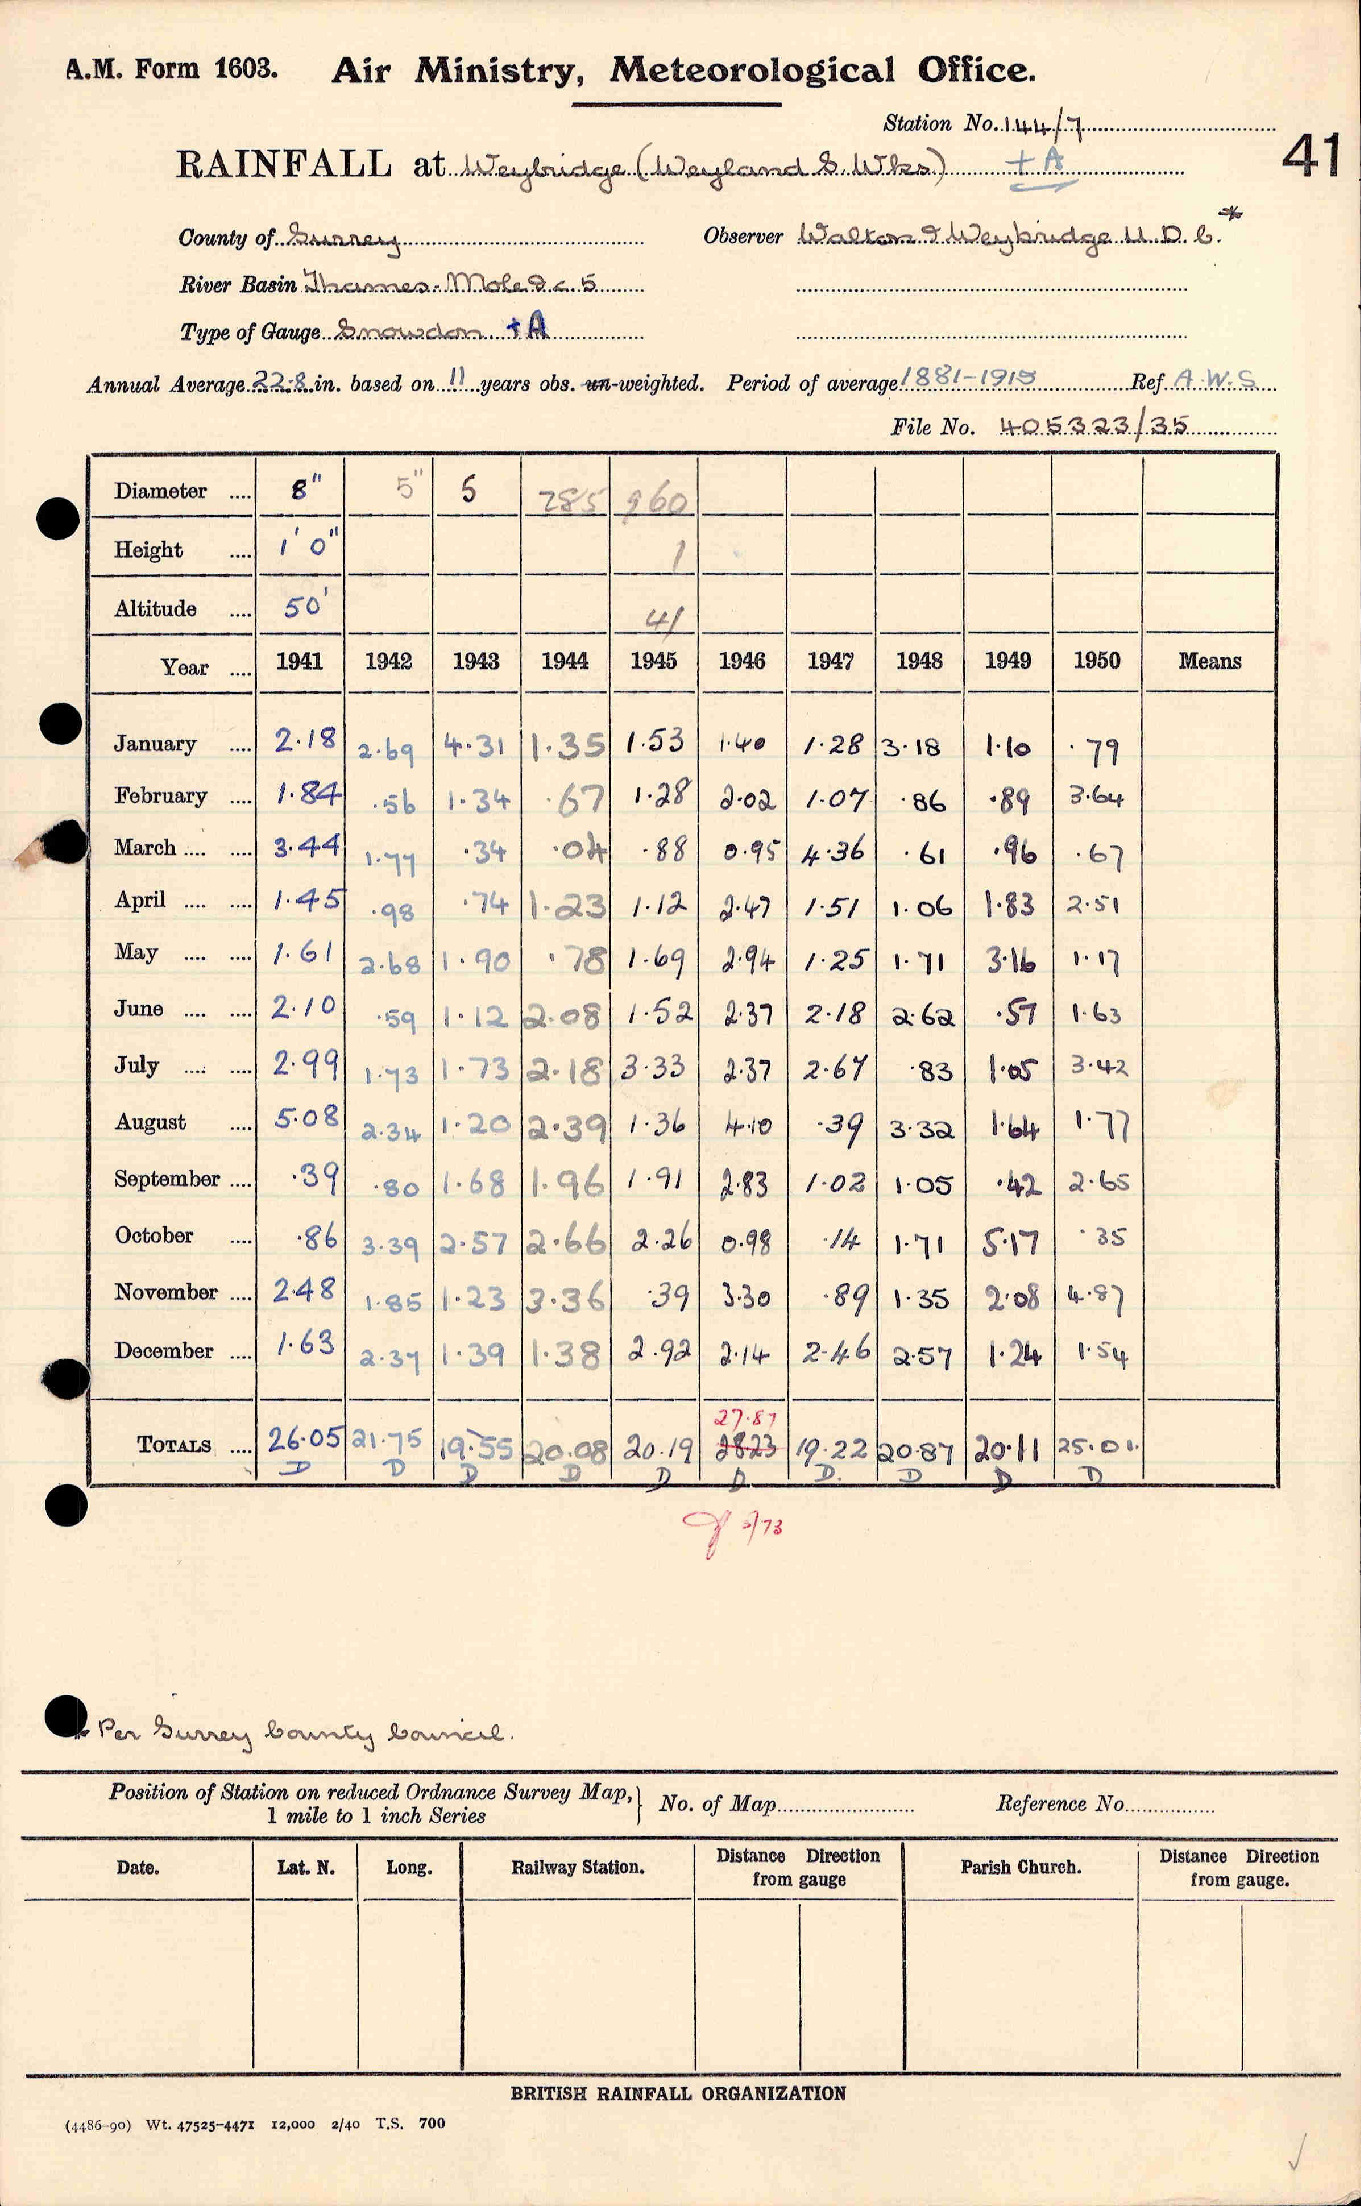 A.M. Form 1603. Air Ministry, Meteorological Office.
Station No. 144/7
41
RAINFALL at Weybridge (Weyland S. Wks) + A
County of Surrey Observer Walton & Weybridge U.D.C.*
River Basin Thames-Mole &c 5
Type of Gauge Snowdon + A
Annual Average 22.8 in. based on 11 years obs. un-weighted. Period of average 1881-1915 Ref. A.W.S
File No. 405323/35
Diameter .... 8" 5" 5 285 960
Height .... 1' 0" 1
Altitude .... 50' 41
Year .... 1941 1942 1943 1944 1945 1946 1947 1948 1949 1950 Means
January .... 2.18 2.69 4.31 1.35 1.53 1.40 1.28 3.18 1.10 .79
February .... 1.84 .56 1.34 .67 1.28 2.02 1.07 .86 .89 3.64
March .... .... 3.44 1.77 .34 .04 .88 0.95 4.36 .61 .96 .67
April .... .... 1.45 .98 .74 1.23 1.12 2.47 1.51 1.06 1.83 2.51
May .... .... 1.61 2.68 1.90 .78 1.69 2.94 1.25 1.71 3.16 1.17
June .... .... 2.10 .59 1.12 2.08 1.52 2.37 2.18 2.62 .57 1.63
July .... .... 2.99 1.73 1.73 2.18 3.33 2.37 2.67 .83 1.05 3.42
August .... 5.08 2.34 1.20 2.39 1.36 4.10 .39 3.32 1.64 1.77
September .... .39 .80 1.68 1.96 1.91 2.83 1.02 1.05 .42 2.65
October .... .86 3.39 2.57 2.66 2.26 0.98 .14 1.71 5.17 .35
November .... 2.48 1.85 1.23 3.36 .39 3.30 .89 1.35 2.08 4.87
December .... 1.63 2.37 1.39 1.38 2.92 2.14 2.46 2.57 1.24 1.54
27.87
TOTALS .... 26.05 21.75 19.55 20.08 20.19 2823 19.22 20.87 20.11 25.01
D D D D D D D. D D D
3/73
* Per Surrey County Council.
Position of Station on reduced Ordnance Survey Map, } No. of Map Reference No.
1 mile to 1 inch Series
Date. Lat. N. Long. Railway Station. Distance Direction from gauge Parish Church. Distance Direction from gauge.
BRITISH RAINFALL ORGANIZATION
(4486-90) Wt. 47525-4471 12,000 2/40 T.S. 700